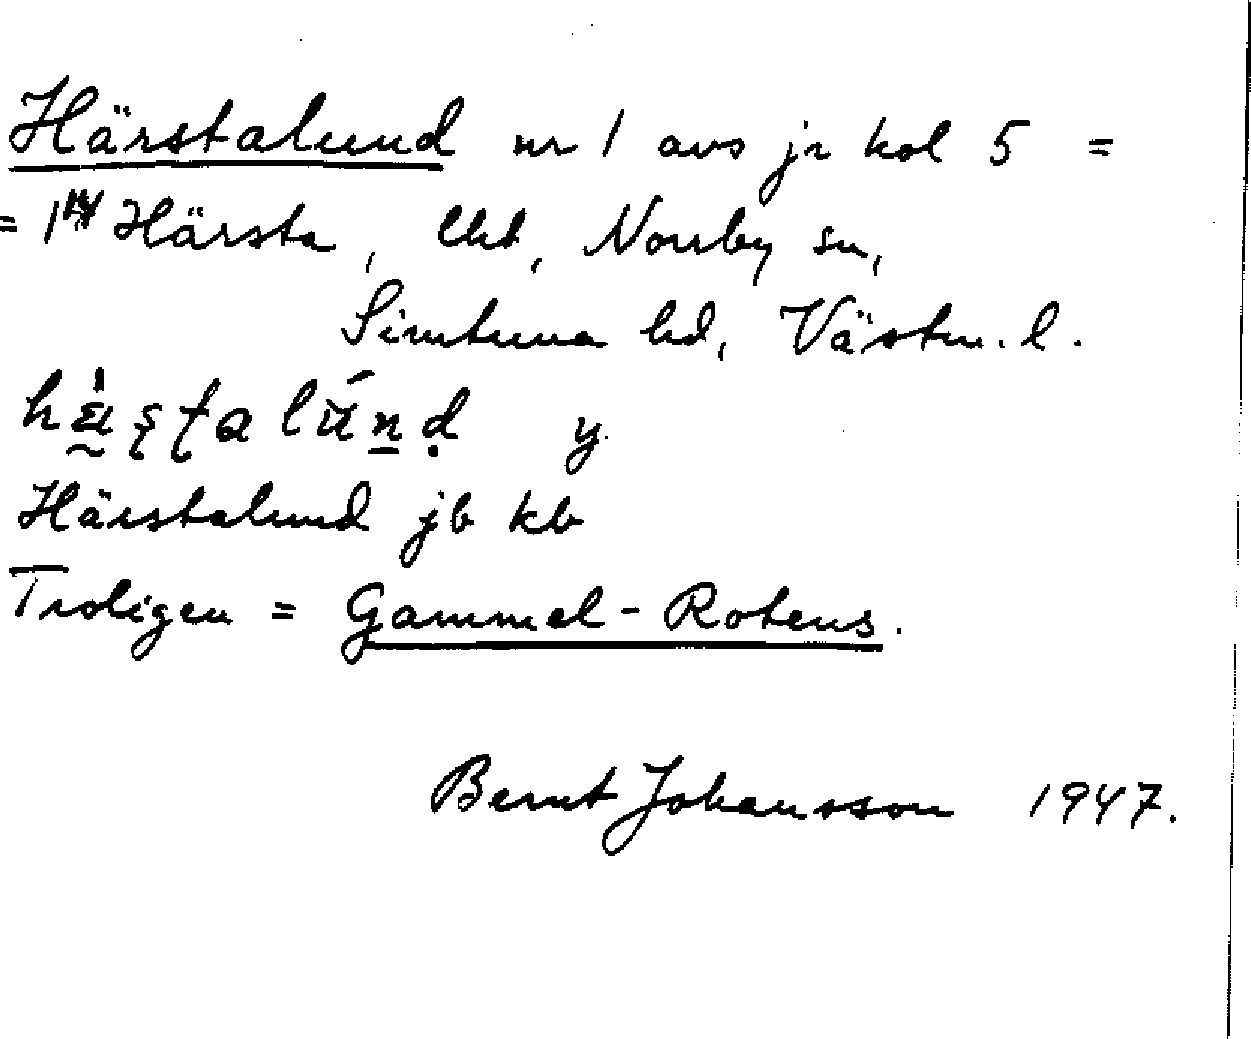 Härstalund nr 1 avs jr kol 5 =
= 1 Härsta, lht, Norrby sn,
Simtuna hd, Västm. l.
y.
Härstalund jb kb
Troligen = Gammel-Rotens.
Bernt Johansson 1947.